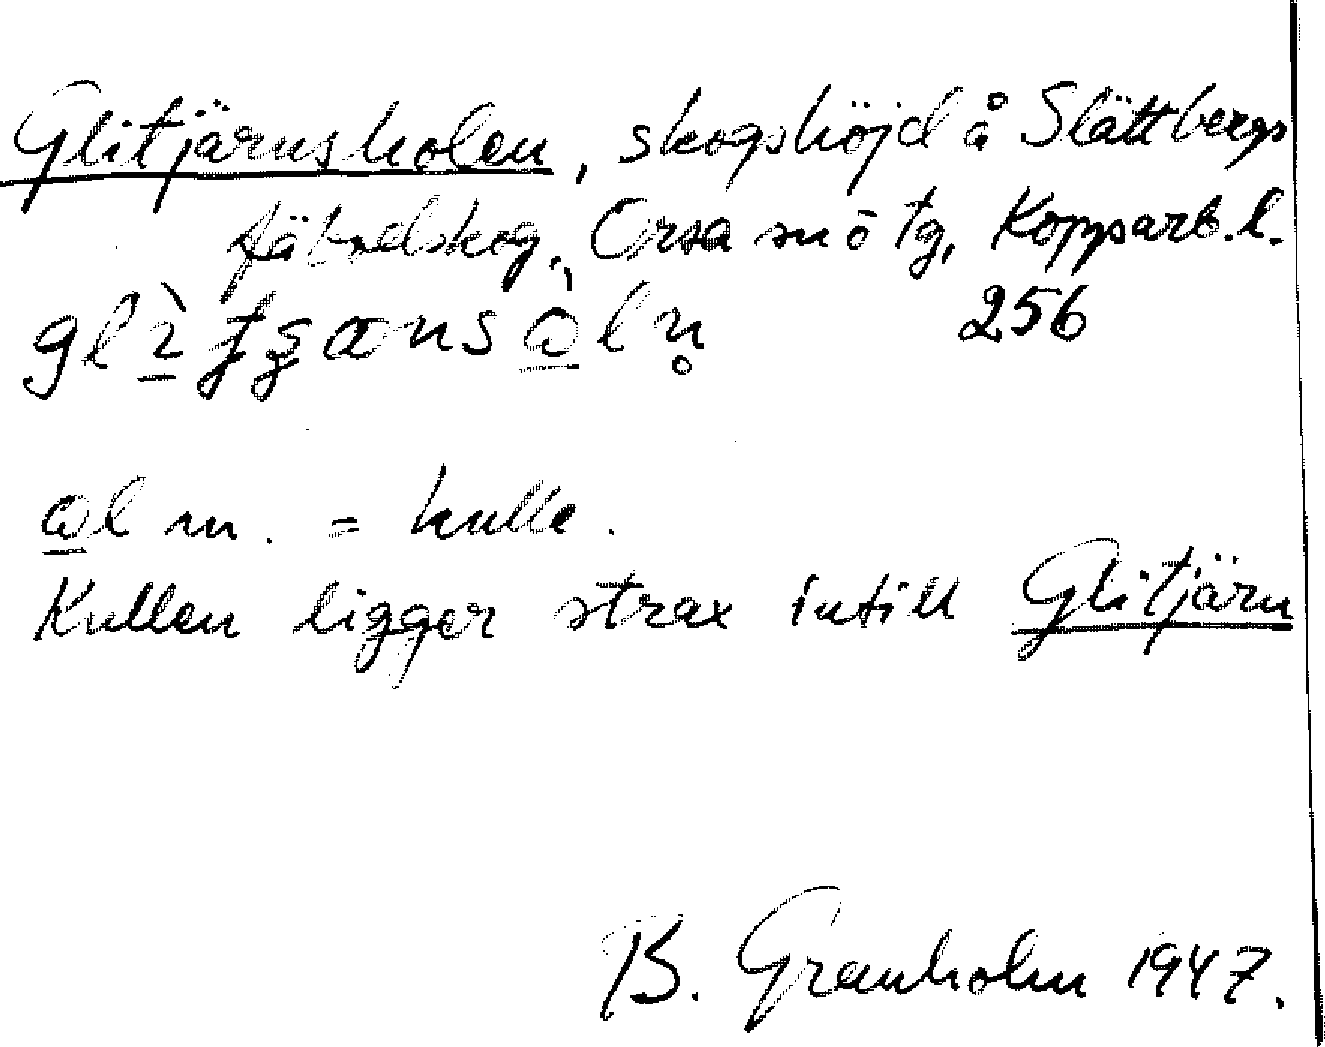 Glitjärnsholen, skogshöjd å Slättbergs
fäbodskog, Orsa sn ö tg, Kopparb. l.
256
l m. = kulle.
Kullen ligger strax intill Glitjärn
B. Granholm 1947.